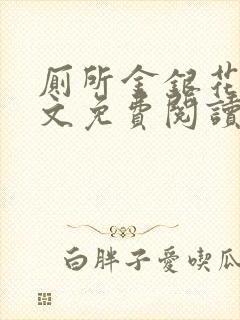 厠所金銀花
文免費閱讀
白胖子愛喫瓜